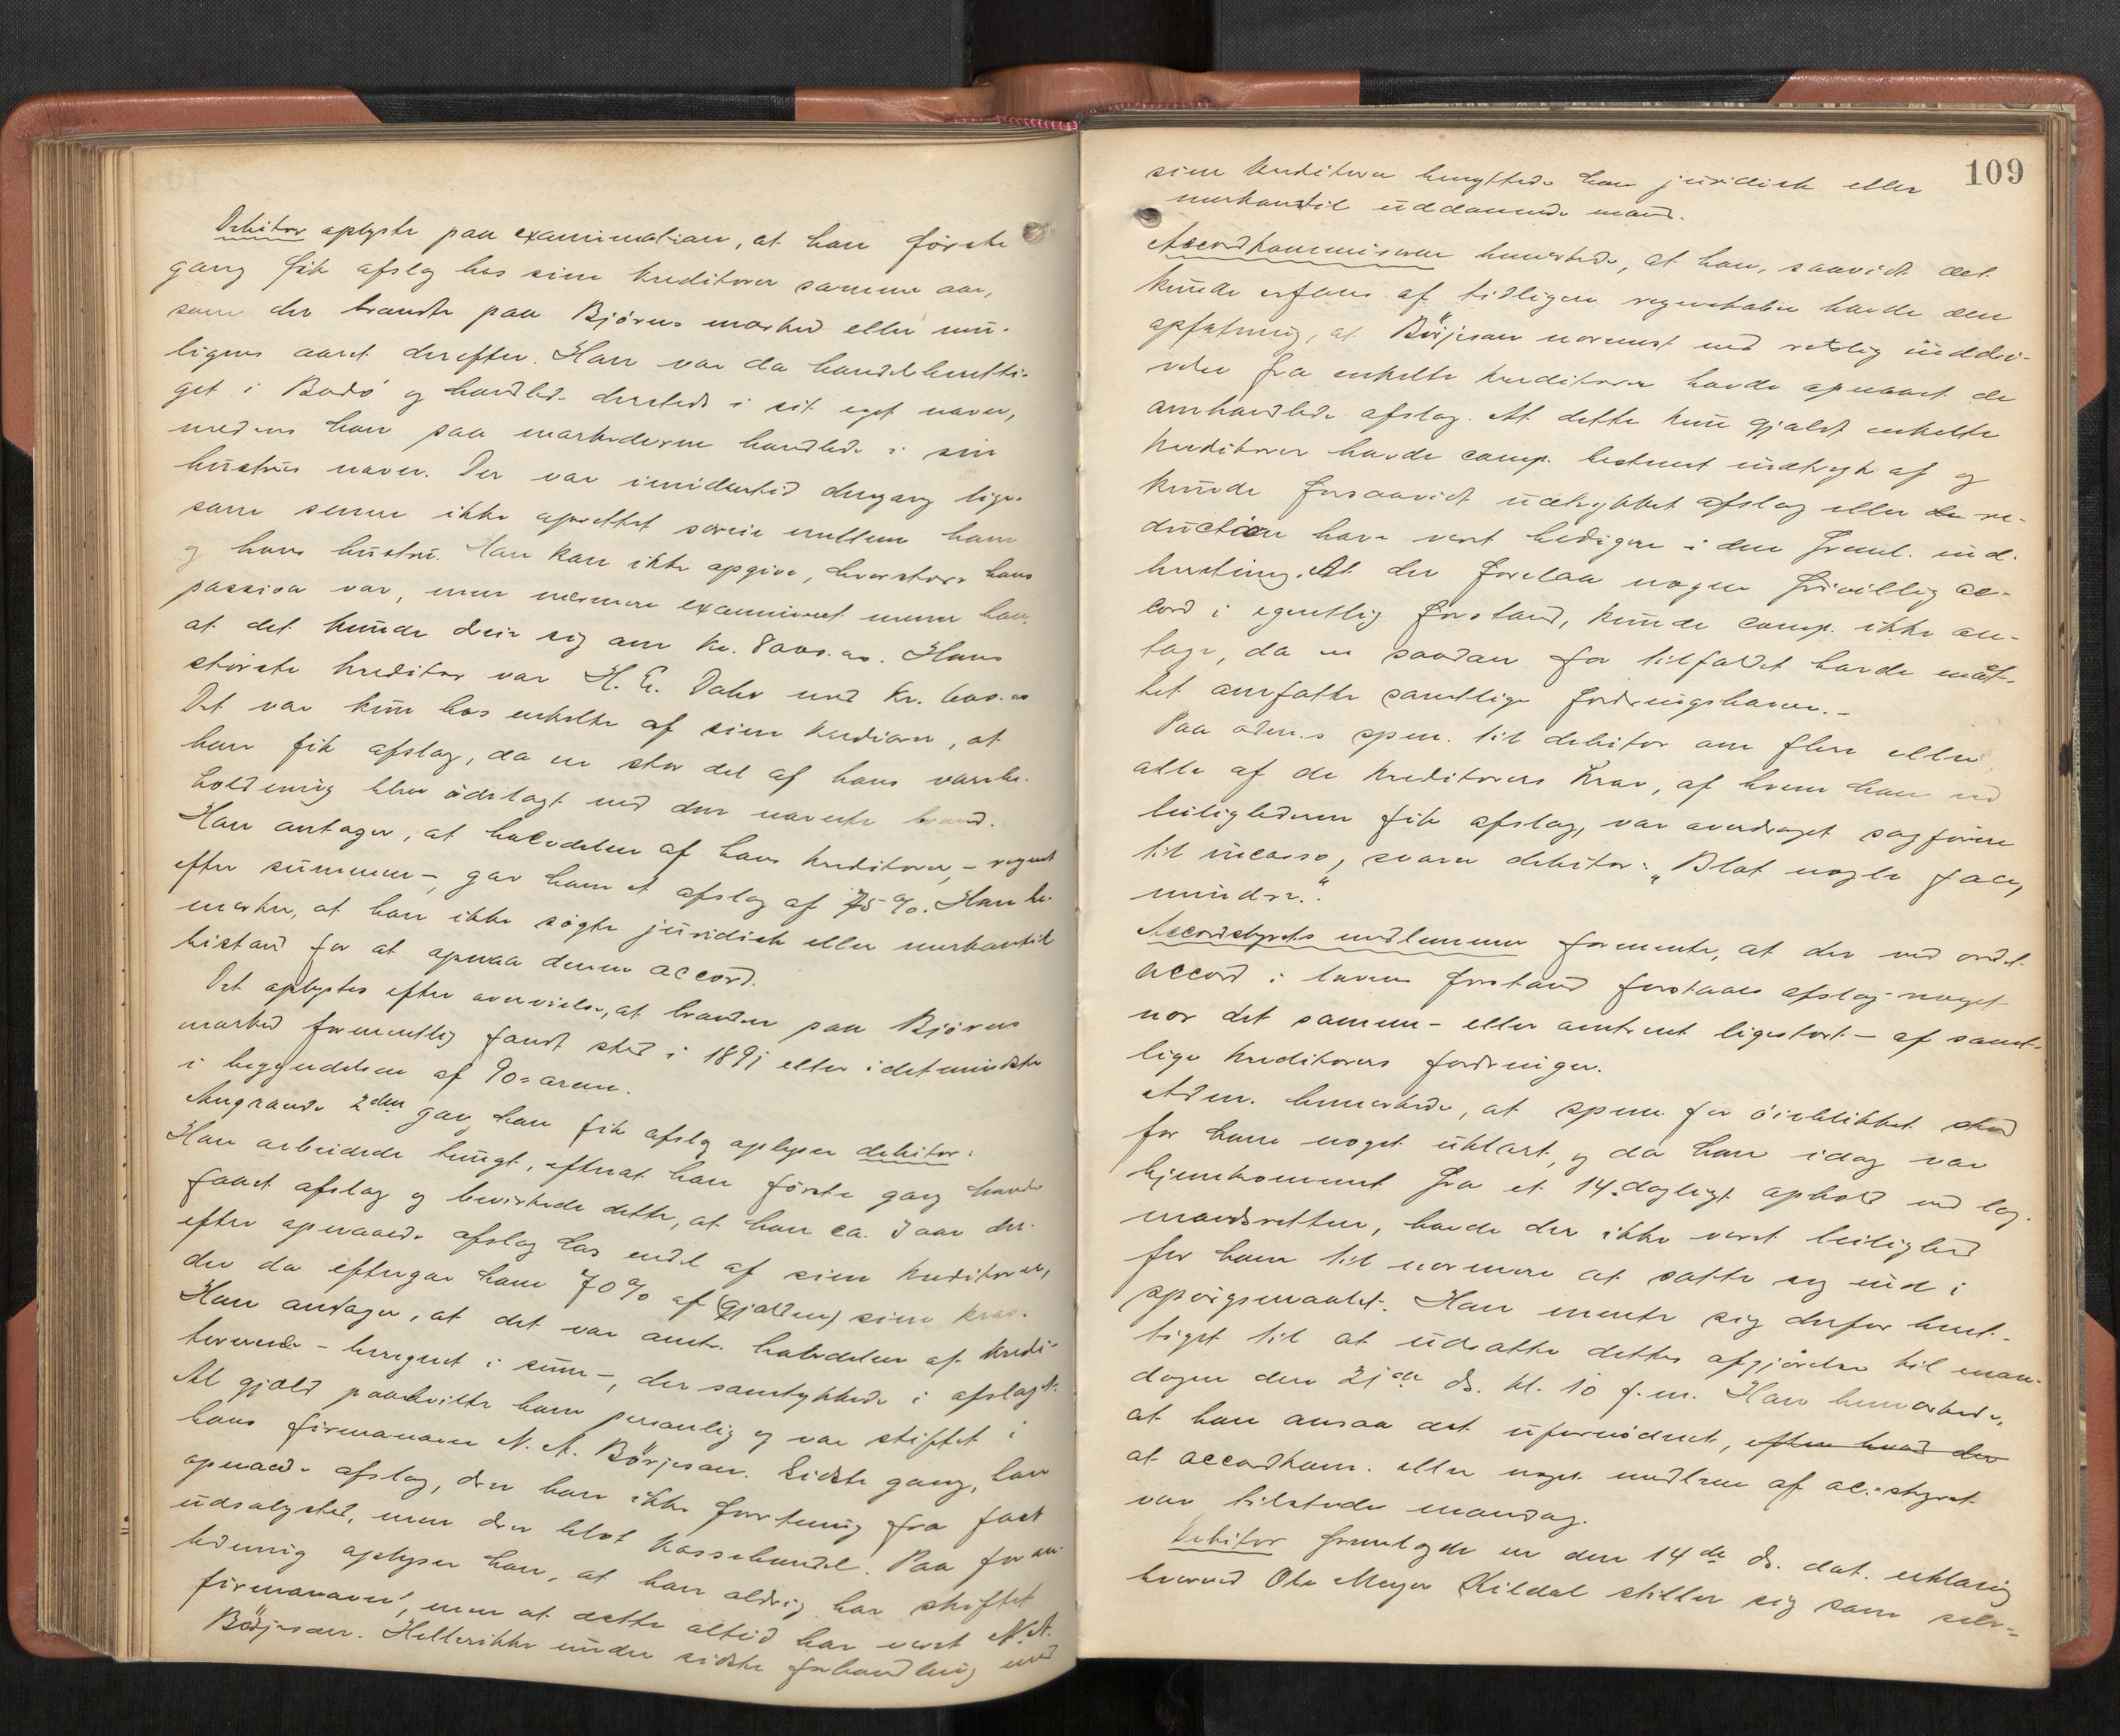 Debitor oplyste paa examination, at han første
gang fik afslag hos sine kreditorer samme aar,
som der brandte paa Bjørns marked eller mu-
ligens aaret derefter. Han var da handelsberetti-
get i Bodø og handled. dersteds i sit eget navn,
medens han paa markederne handlede i sin
hustrus navn. Der var imidlertid dengang lige-
som senere ikke oprettet særeie mellem ham
og hans hustru. Han kan ikke opgive, hvor store hans
passiva var, men nærmere examineret mener han,
at det kunde dreie sig om kr. 8000.00. Hans
største kreditor var H. E. Dahr med kr. 600.00
Det var kun hos enkelte af sine kreditorer, at
han fik afslag, da en stor del af hans varebe-
holdning blev ødelagt ved den nævnte brand.
Han antager, at halvdelen af hans kreditorer, – regnet
efter summen –, gav ham et afslag af 75 %. Han be-
mærker, at han ikke søgte juridisk eller merkantil
bistand for at opnaa denne accord.
Det oplystes efter overveielse, at branden paa Bjørns
marked formentlig fandt sted i 1891 eller i det mindste
i begyndelsen af 90-arene.
Angaaende 2den gang han fik afslag oplyser debitor:
Han arbeidede tungt, efterat han første gang havde
faaet afslag og bevirkede dette, at han ca. 3 aar der-
efter opnaaede afslag hos endel af sine kreditorer,
der da eftergav ham 70 % af (gjælden) sine krav.
Han antager, at det var omtr. halvdelen af kredi-
torerne – beregnet i sum –, der samtykkede i afslaget.
Al gjæld paahvilte ham personlig og var stiftet i
hans firmanavn N. A. Börjeson. Sidste gang, han
opnaaede afslag, drev han ikke forretning fra fast
udsalgsted, men drev blot kassehandel. Paa foran-
ledning oplyser han, at han aldrig har skiftet
firmanavn, men at dette altid har været N. A.
Börjeson. Hellerikke under sidste forhandling med
109
sine kreditorer benyttede han juridisk eller
merkantil uddannede mænd.
Accordkommisæren bemerkede, at han, saavidt det
kunde erfares af tidligere regnskaber havde den
opfatning, at Börjeson nærmest ved retslig inddri-
velse fra enkelte kreditorer havde opnaaet de
omhandlede afslag. At dette kun gjaldt enkelte
kreditorer havde comp. bestemt indtryk af og
kunde forsaavidt udtrykket afslag eller de re-
duction have vært heldigere i den freml. ind-
beretning. At der forelaa nogen frivillig ac-
cord i egentlig forstand, kunde comp. ikke an-
tage, da en saadan for tilfældet havde maat-
tet omfatte samtlige fordringshavere. –
Paa adm.s spm. til debitor om flere eller
alle af de kreditorers krav, af hvem han ved
leilighederne fik afslag, var overdraget sagførere
til incasso, svarer debitor: „Blot nogle faa,
mindre.“
Accordstyrets medlemmer formente, at der ved ordet
accord i lovens forstand forstaaes afslag – noget-
nær det samme – eller omtrent ligestort – af samt-
lige kreditorers fordringer.
Adm. bemerkede, at spm. for øieblikket stod
for ham noget uklart, og da han idag var
hjemkommet fra et 14-dagligt ophold ved lag-
mandsretten, havde der ikke været leilighed
for ham til nærmere at sætte sig ind i
spørgsmaalet. Han mente sig derfor beret-
tiget til at udsætte dettes afgjørelse til man-
dagen den 21de ds. kl. 10 f.m. Han bemerkede,
at han ansaa det ufornødent, efter hvad der
at accordkom. eller noget medlem af ac.-styret
var tilstede mandag.
Debitor fremlagde en den 14de ds. dat. erklæring
hvorved Ole Meyer Kildal stiller sig som selv-